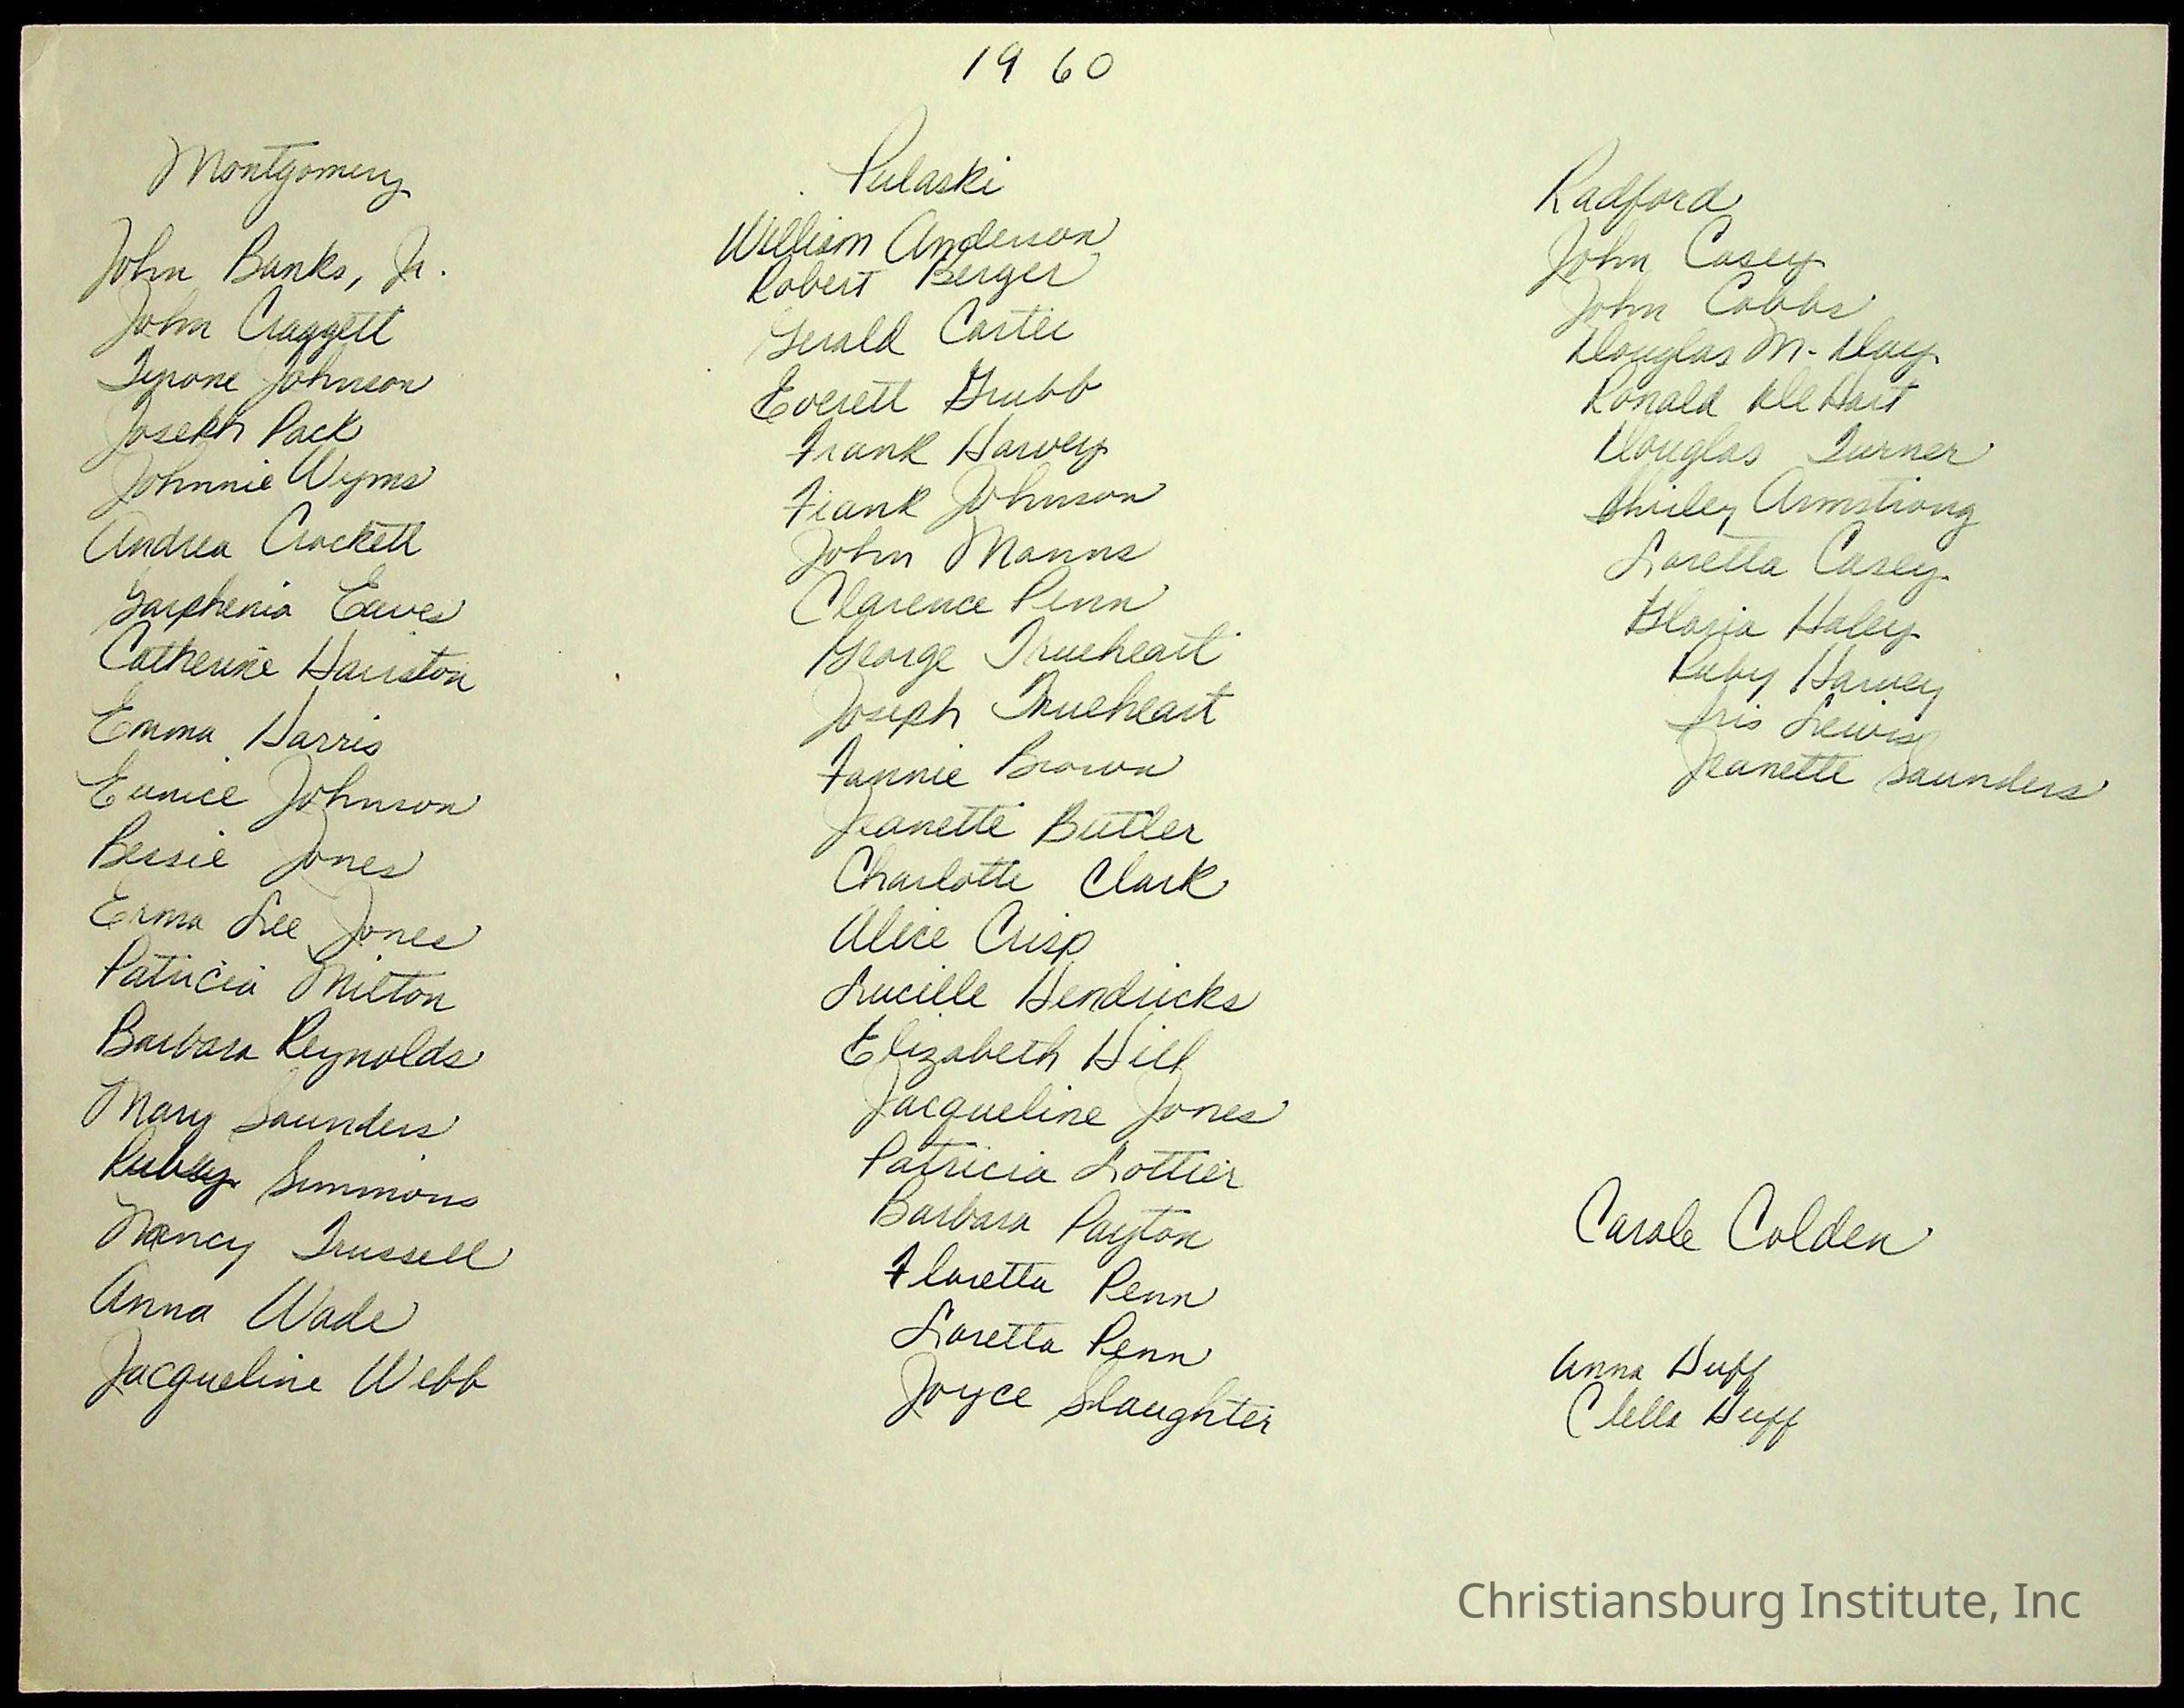 1960
Montgomery
John Banks, Jr.
John Claggett
Tyrone Johnson
Joseph Pack
Johnnie Wyms
Andrea Crockett
Garphenia Eaves
Catherine Hairston
Emma Harris
Eunice Johnson
Bessie Jones
Erma Lee Jones
Patricia Milton
Barbara Reynolds
Mary Saunders
Ruby Simmons
Nancy Trussell
Anna Wade
Jacqueline Webb
Pulaski
William Anderson
Robert Berger
Gerald Carter
Everett Grubb
Frank Harvey
Frank Johnson
John Manns
Clarence Penn
George Trueheart
Joseph Trueheart
Fannie Brown
Jeanette Butler
Charlotte Clark
Alice Crisp
Lucille Hendricks
Elizabeth Hill
Jacqueline Jones
Patricia Lottier
Barbara Payton
Floretta Penn
Loretta Penn
Joyce Slaughter
Radford
John Casey
John Cobbs
Douglas M. Day
Ronald DeHart
Douglas Turner
Shirley Armstrong
Loretta Casey
Gloria Haley
Ruby Harvey
Iris Lewis
Jeanette Saunders
Carole Colden
Anna Huff
Clella Huff
Christiansburg Institute, Inc